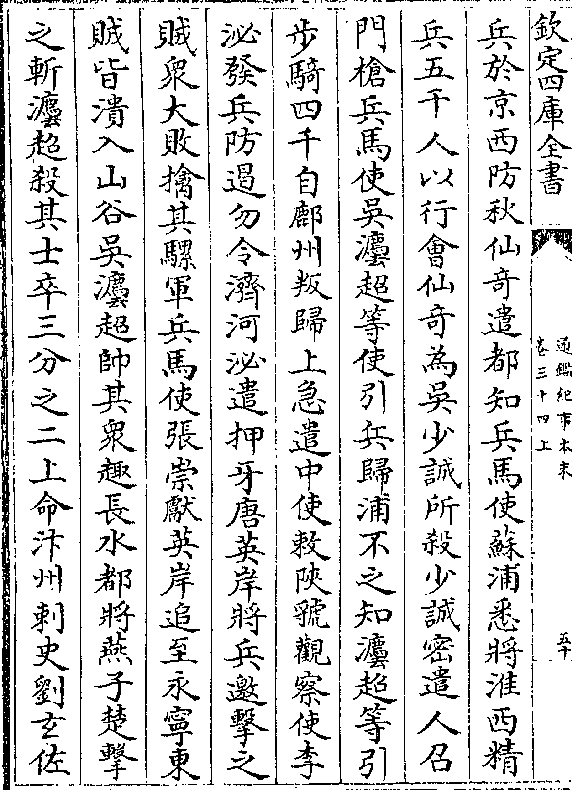 欽定四庫全書
通鑑紀事本末
卷三十四上
五十
兵於京西防秋仙奇遣都知兵馬使蘇浦悉將淮西精
兵五千人以行會仙奇為吳少誠所殺少誠密遣人召
門槍兵馬使吳灋超等使引兵歸浦不之知灋超等引
步騎四千自鄜州叛歸上急遣中使敕陝虢觀察使李
泌發兵防遏勿令濟河泌遣押牙唐英岸將兵邀擊之
賊衆大敗擒其騾軍兵馬使張崇獻英岸追至永寧東
賊皆潰入山谷吳灋超帥其衆趣長水都將燕子楚擊
之斬灋超殺其士卒三分之二上命汴州刺史劉玄佐